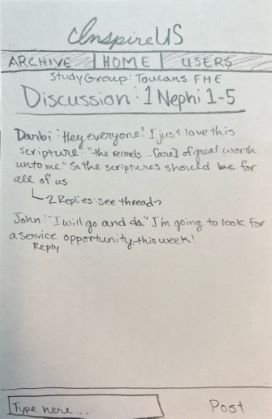 InspireUS
ARCHIVE | HOME | USERS
Study Group: Toucans FHE
Discussion: 1 Nephi 1-5
Danbi: "Hey everyone! I just love this
scripture "the records...[are] of great worth
unto me" So the scriptures should be for
all of us
2 Replies: see thread→
John: "I will go and do." I'm going to look for
a service opportunity this week!
Reply
Type here...
Post